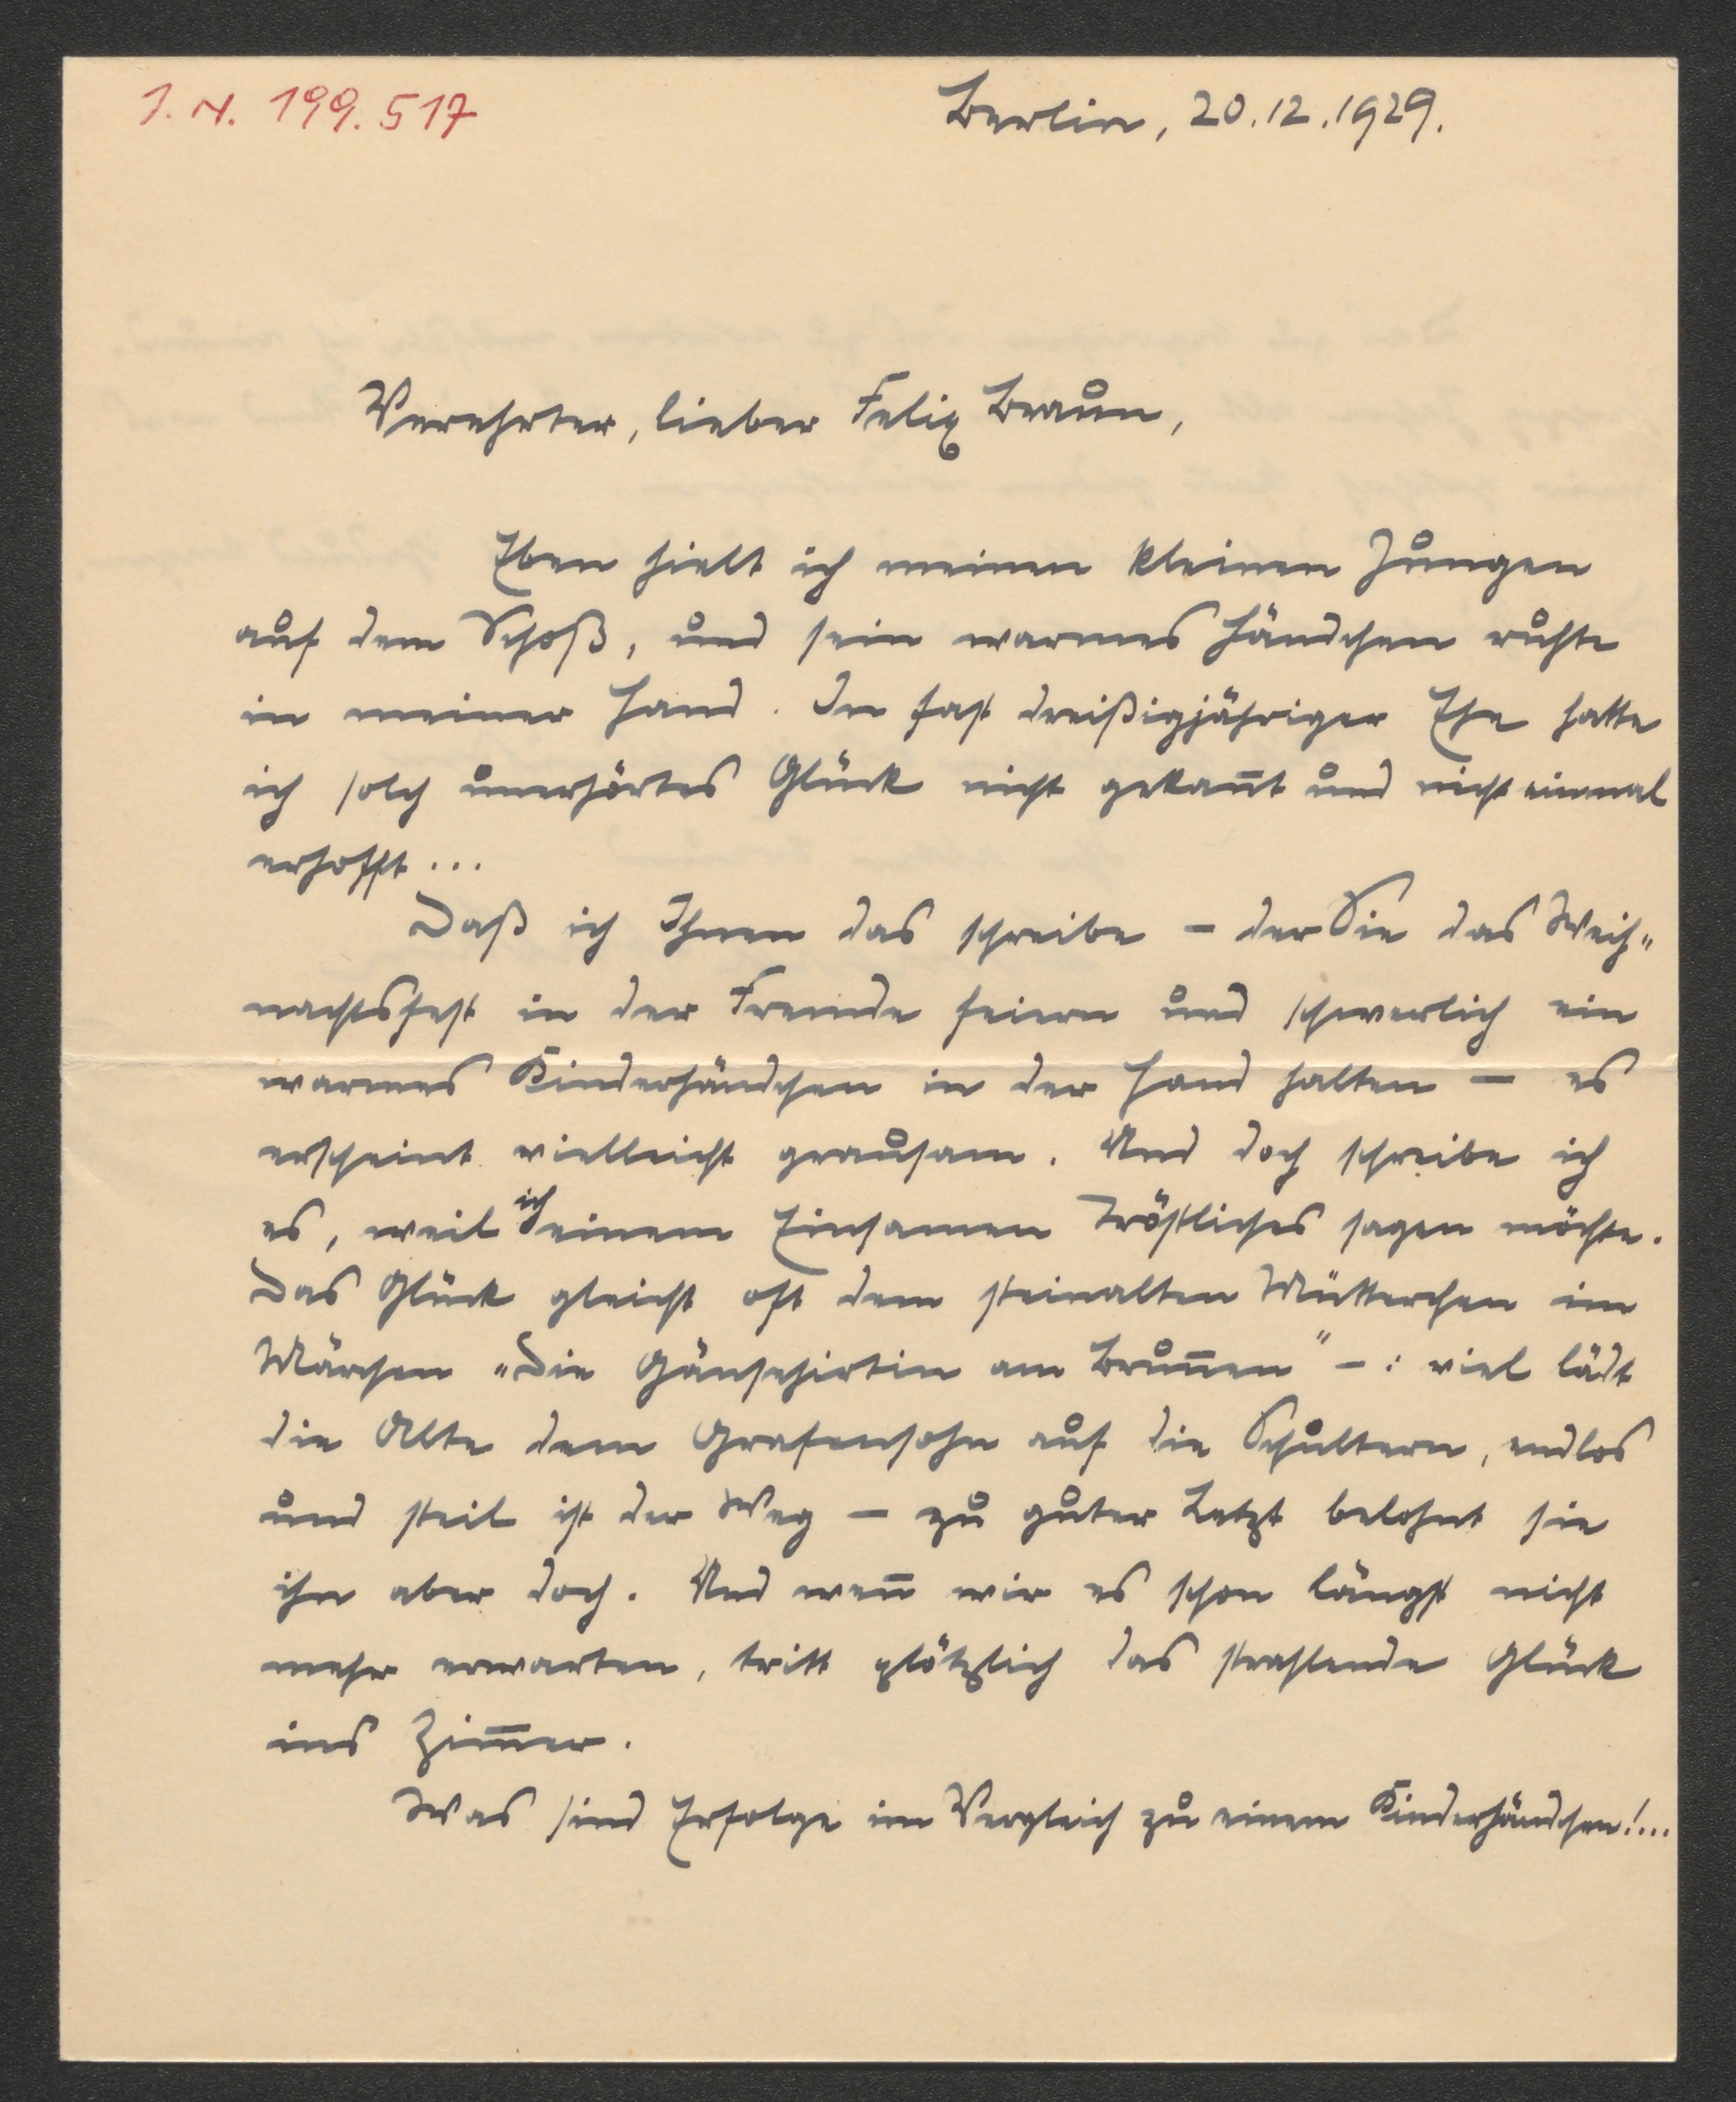 I. N. 199.517
Berlin, 20.12.1929.
Verehrter, lieber Felix Braun,
Eben hielt ich meinen kleinen Jungen
auf dem Schoß, und sein warmes Händchen ruhte
in meiner Hand. In fast dreißigjähriger Ehe hatte
ich solch unerhörtes Glück nicht gekan̄t und nicht einmal
erhofft ...
Daß ich Ihnen das schreibe – der Sie das Weih"
nachtsfest in der Fremde feiern und schwerlich ein
warmes Kinderhändchen in der Hand halten – es
erscheint vielleicht grausam. Und doch schreibe ich
es, weil ich einem Einsamen Tröstliches sagen möchte.
Das Glück gleicht oft dem steinalten Mütterchen im
Märchen „Die Gänsehirtin am Brun̄en" –: viel lädt
die Alte dem Grafensohn auf die Schultern, endlos
und steil ist der Weg – zu guter Letzt belohnt sie
ihn aber doch. Und wen̄ wir es schon längst nicht
mehr erwarten, tritt plötzlich das strahlende Glück
ins Zim̄er.
Was sind Erfolge im Vergleich zu einem Kinderhändchen!...